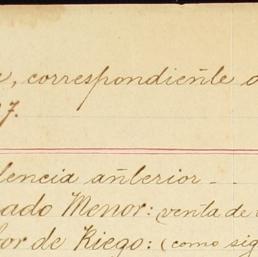 , correspondiente
7.
lencia anterior
ado Menor: (venta de
or de Riego: (como sig